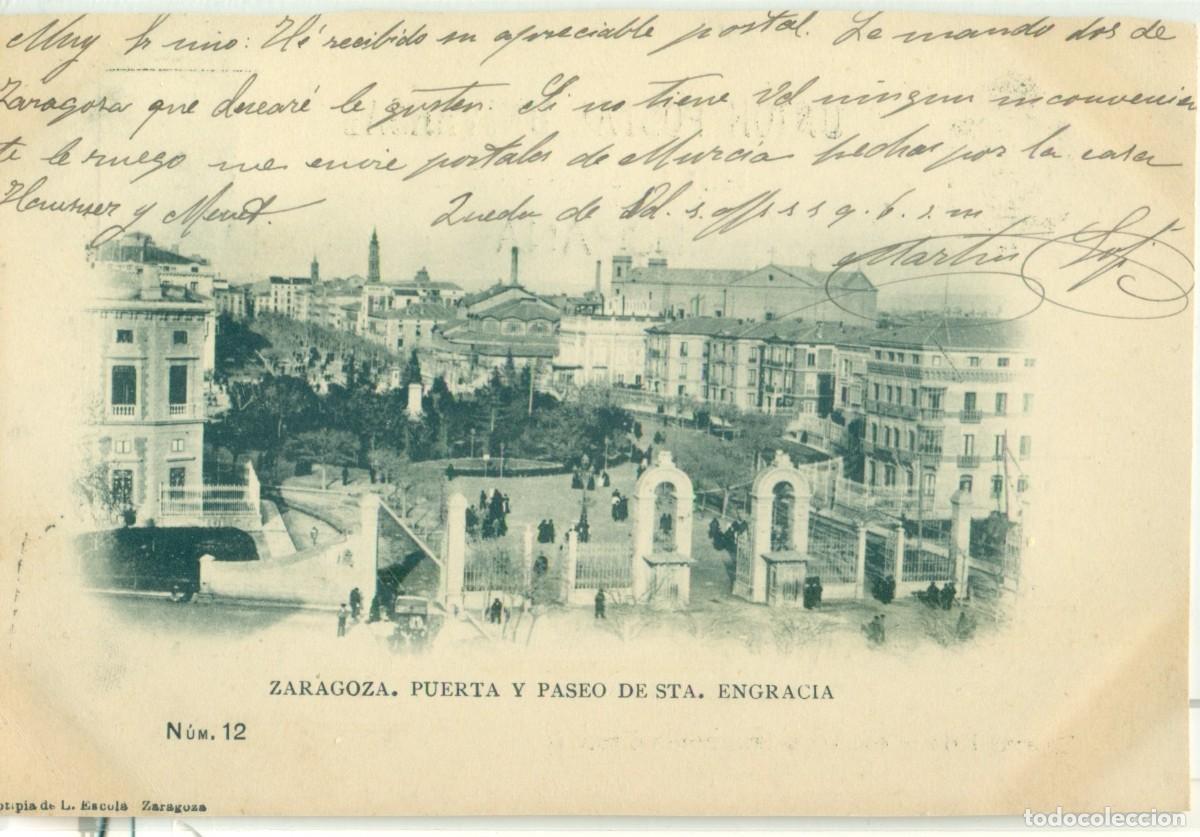 Muy Sr mio: Hé recibido su apreciable postal. Le mando dos de
Zaragoza que desearé le gusten. Si no tiene Vd ningun inconvenien
te le ruego me envie postales de Murcia hechas por la casa
Hausser y Menet. Queda de Vd. s. affs s s q. b. s. m
Martin
ZARAGOZA. PUERTA Y PASEO DE STA. ENGRACIA
NÚM. 12
otipia de L. Escolá Zaragoza
todocoleccion